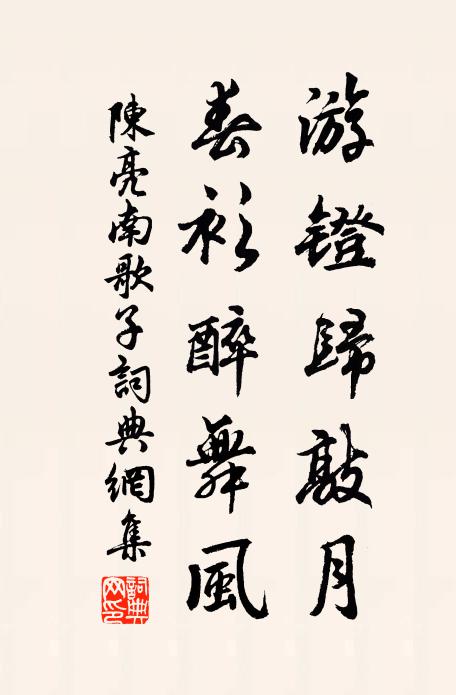 游鐙歸敲月
春衫醉舞風
陳亮南歌子詞典網集
詞典網印